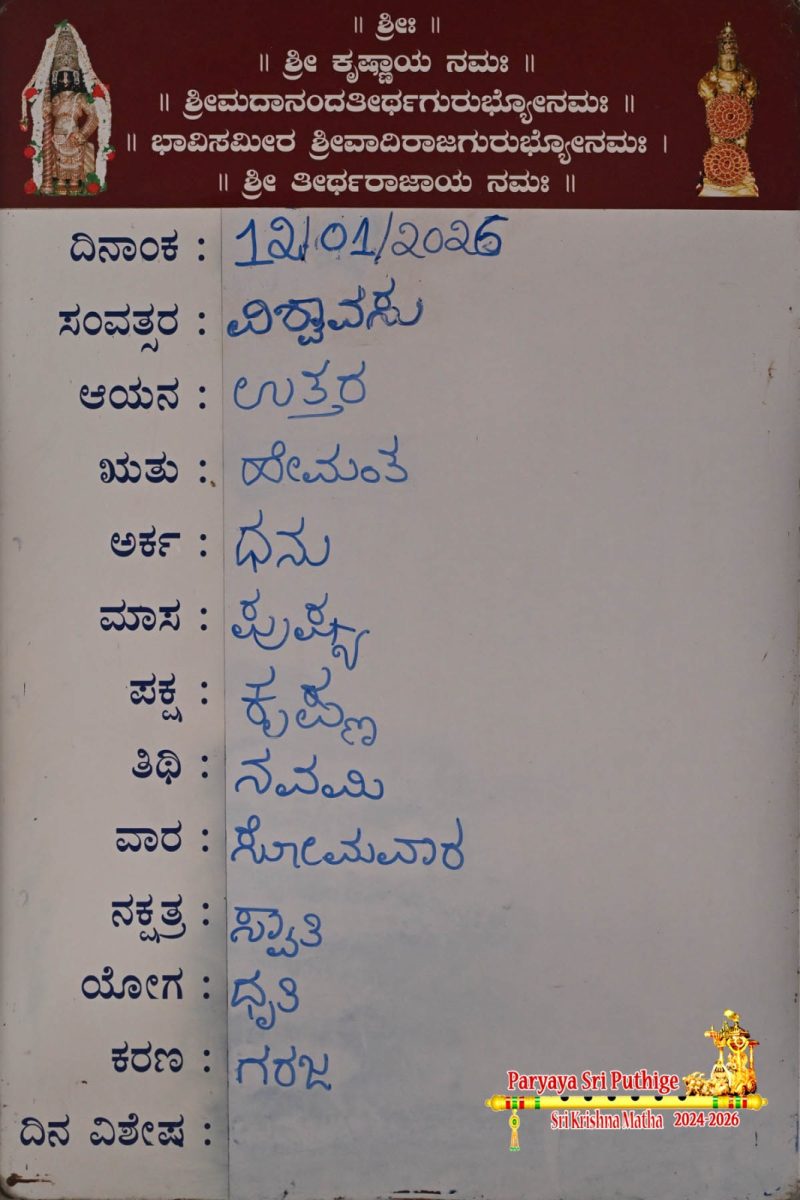 ॥ ಶ್ರೀಃ ॥
॥ ಶ್ರೀ ಕೃಷ್ಣಾಯ ನಮಃ ॥
॥ ಶ್ರೀಮದಾನಂದತೀರ್ಥಗುರುಭ್ಯೋನಮಃ ॥
॥ ಭಾವಿಸಮೀರ ಶ್ರೀವಾದಿರಾಜಗುರುಭ್ಯೋನಮಃ ।
॥ ಶ್ರೀ ತೀರ್ಥರಾಜಾಯ ನಮಃ ॥
ದಿನಾಂಕ : 12/01/2026
ಸಂವತ್ಸರ : ವಿಶ್ವಾವಸು
ಆಯನ : ಉತ್ತರ
ಋತು : ಹೇಮಂತ
ಅರ್ಕ : ಧನು
ಮಾಸ : ಪುಷ್ಯ
ಪಕ್ಷ : ಕೃಷ್ಣ
ತಿಥಿ : ನವಮಿ
ವಾರ : ಸೋಮವಾರ
ನಕ್ಷತ್ರ : ಸ್ವಾತಿ
ಯೋಗ : ಧೃತಿ
ಕರಣ : ಗರಜ
ದಿನ ವಿಶೇಷ :
Paryaya Sri Puthige
Sri Krishna Matha 2024-2026